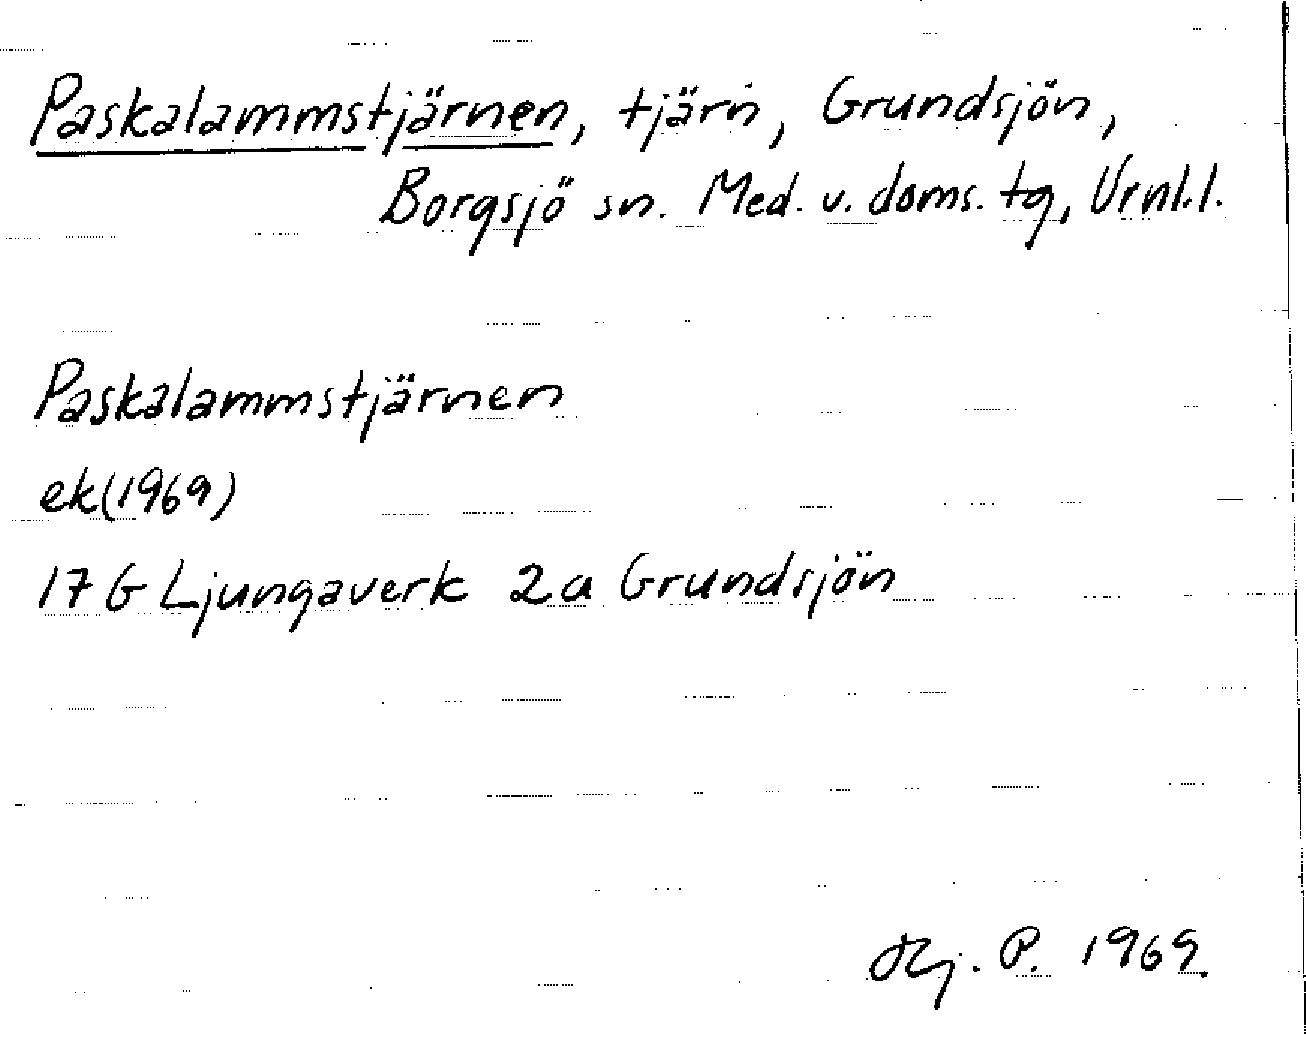 Paskalammstjärnen, tjärn, Grundsjön,
Borgsjö sn. Med. v. doms. tg, Vrnl.l.
Paskalammstjärnen
ek(1969)
17 G Ljungaverk 2a Grundsjön
Hj. P. 1969.